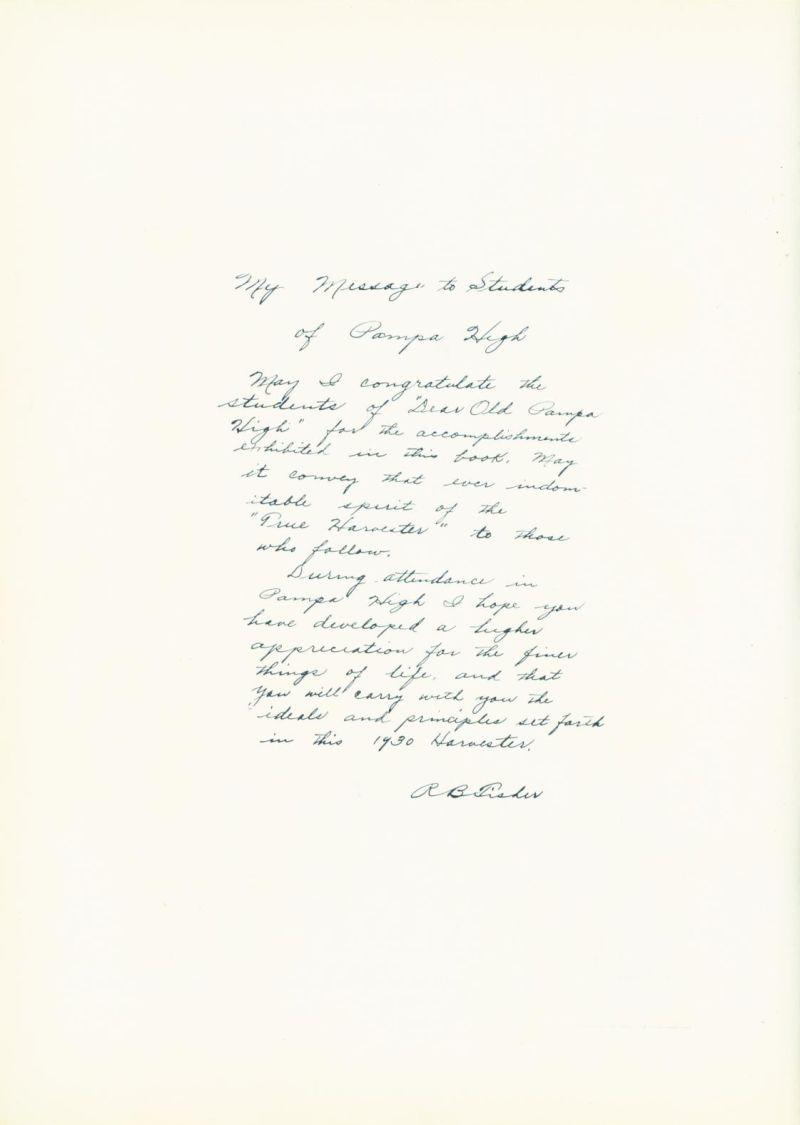 My Message to Students
of Pampa High
May I congratulate the
students of "Dear Old Pampa
High" for the accomplishments
exhibited in this book. May
it convey that ever indom-
itable spirit of the
"True Harvester" to those
who follow.
During attendance in
Pampa High I hope you
have developed a higher
appreciation for the finer
things of life, and that
you will carry with you the
ideals and principles set forth
in this 1930 Harvester.
R B Fisher